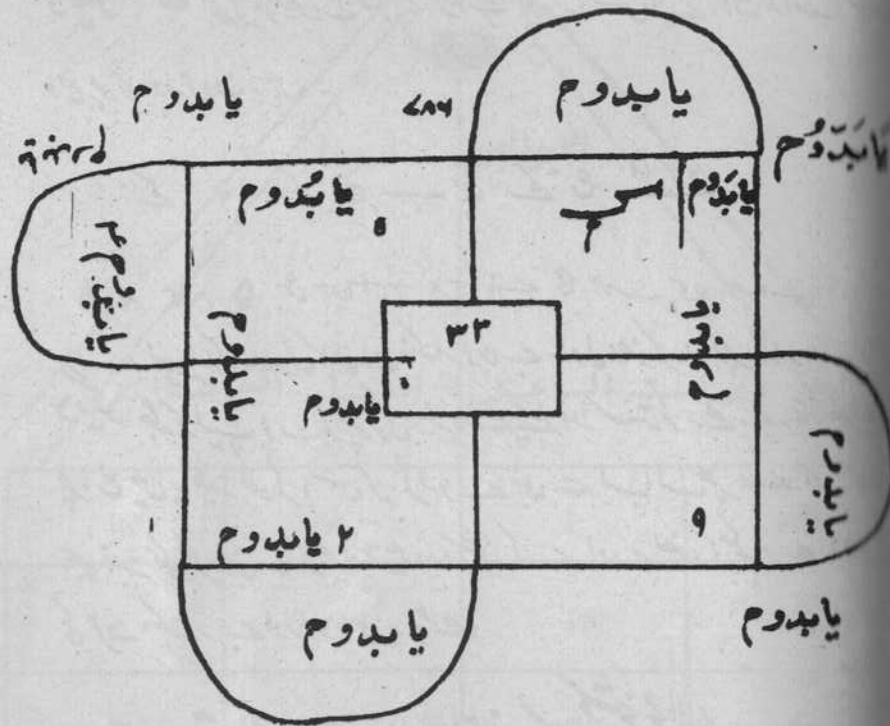 یا بدوح
۷۸۶
یا بدوح
یا بَدُّوح
یا بدوح
یا بُدوح
یا بَدوح
یا بدوح
یا بدوح
۳۳
یا بدوح
یا بدوح
۲ یا بدوح
۹
یا بدوح
یا بدوح